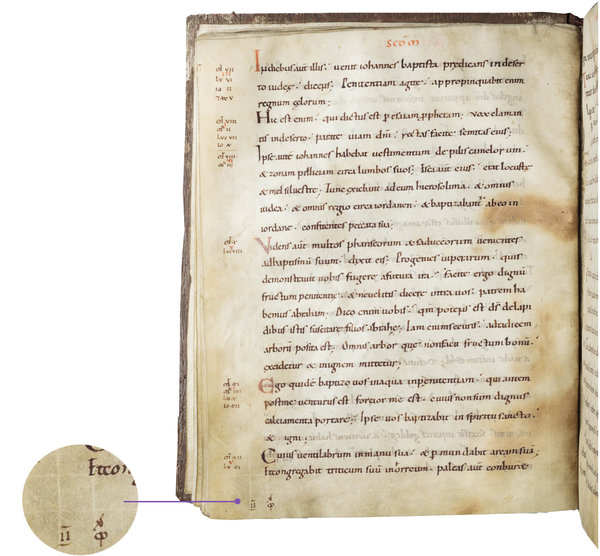 In diebus aut illis · venit iohannes baptista predicans in deser
to iudeę · dicens · Penitentiam agite · appropinquabit enim
regnum celorum ;
Hic est enim · qui dictus est p esaiam pphetam · vox claman
tis in deserto · parate viam dni · rectas facite semitas eius ·
Ipse aut iohannes habebat vestimentum de pilis camelorum ·
& zonam pelliciam circa lumbos suos · Esca aut eius · erat locuste
& mel siluestre · Tunc exiebant ad eum hierosolima · & omnis
iudea · & omnis regio circa iordanen · & baptizabant ab eo in
iordane · confitentes peccata sua ;
Videns aut multos phariseorum & saduceorum venientes
ad baptismu suum · dixit eis · Progenies viperarum · quis
demonstravit vobis fugere a futura ira · facite ergo dignu
fructum penitentię · & ne velitis dicere intra vos · patrem ha
bemus abraham · Dico enim vobis · qm potens est ds de lapi
dibus istis suscitare filios abrahę · Iam enim securis · ad radicem
arboru posita est · Omnis arbor que non facit fructum bonu
excidetur & in ignem mittetur ;
Ego quide baptizo vos in aqua in penitentiam · qui autem
post me venturus est fortior me est · cuius non sum dignus
calciamenta portare · Ipse vos baptizabit in spiritu sancto
& igni ;
Cuius ventilabrum in manu sua · & p mundabit aream sua ;
Et congregabit triticum suu in horreum · paleas aut conburę
II